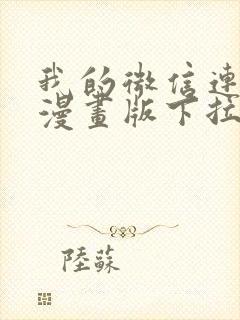 我的微信連
漫畫版下拉
陸蘇